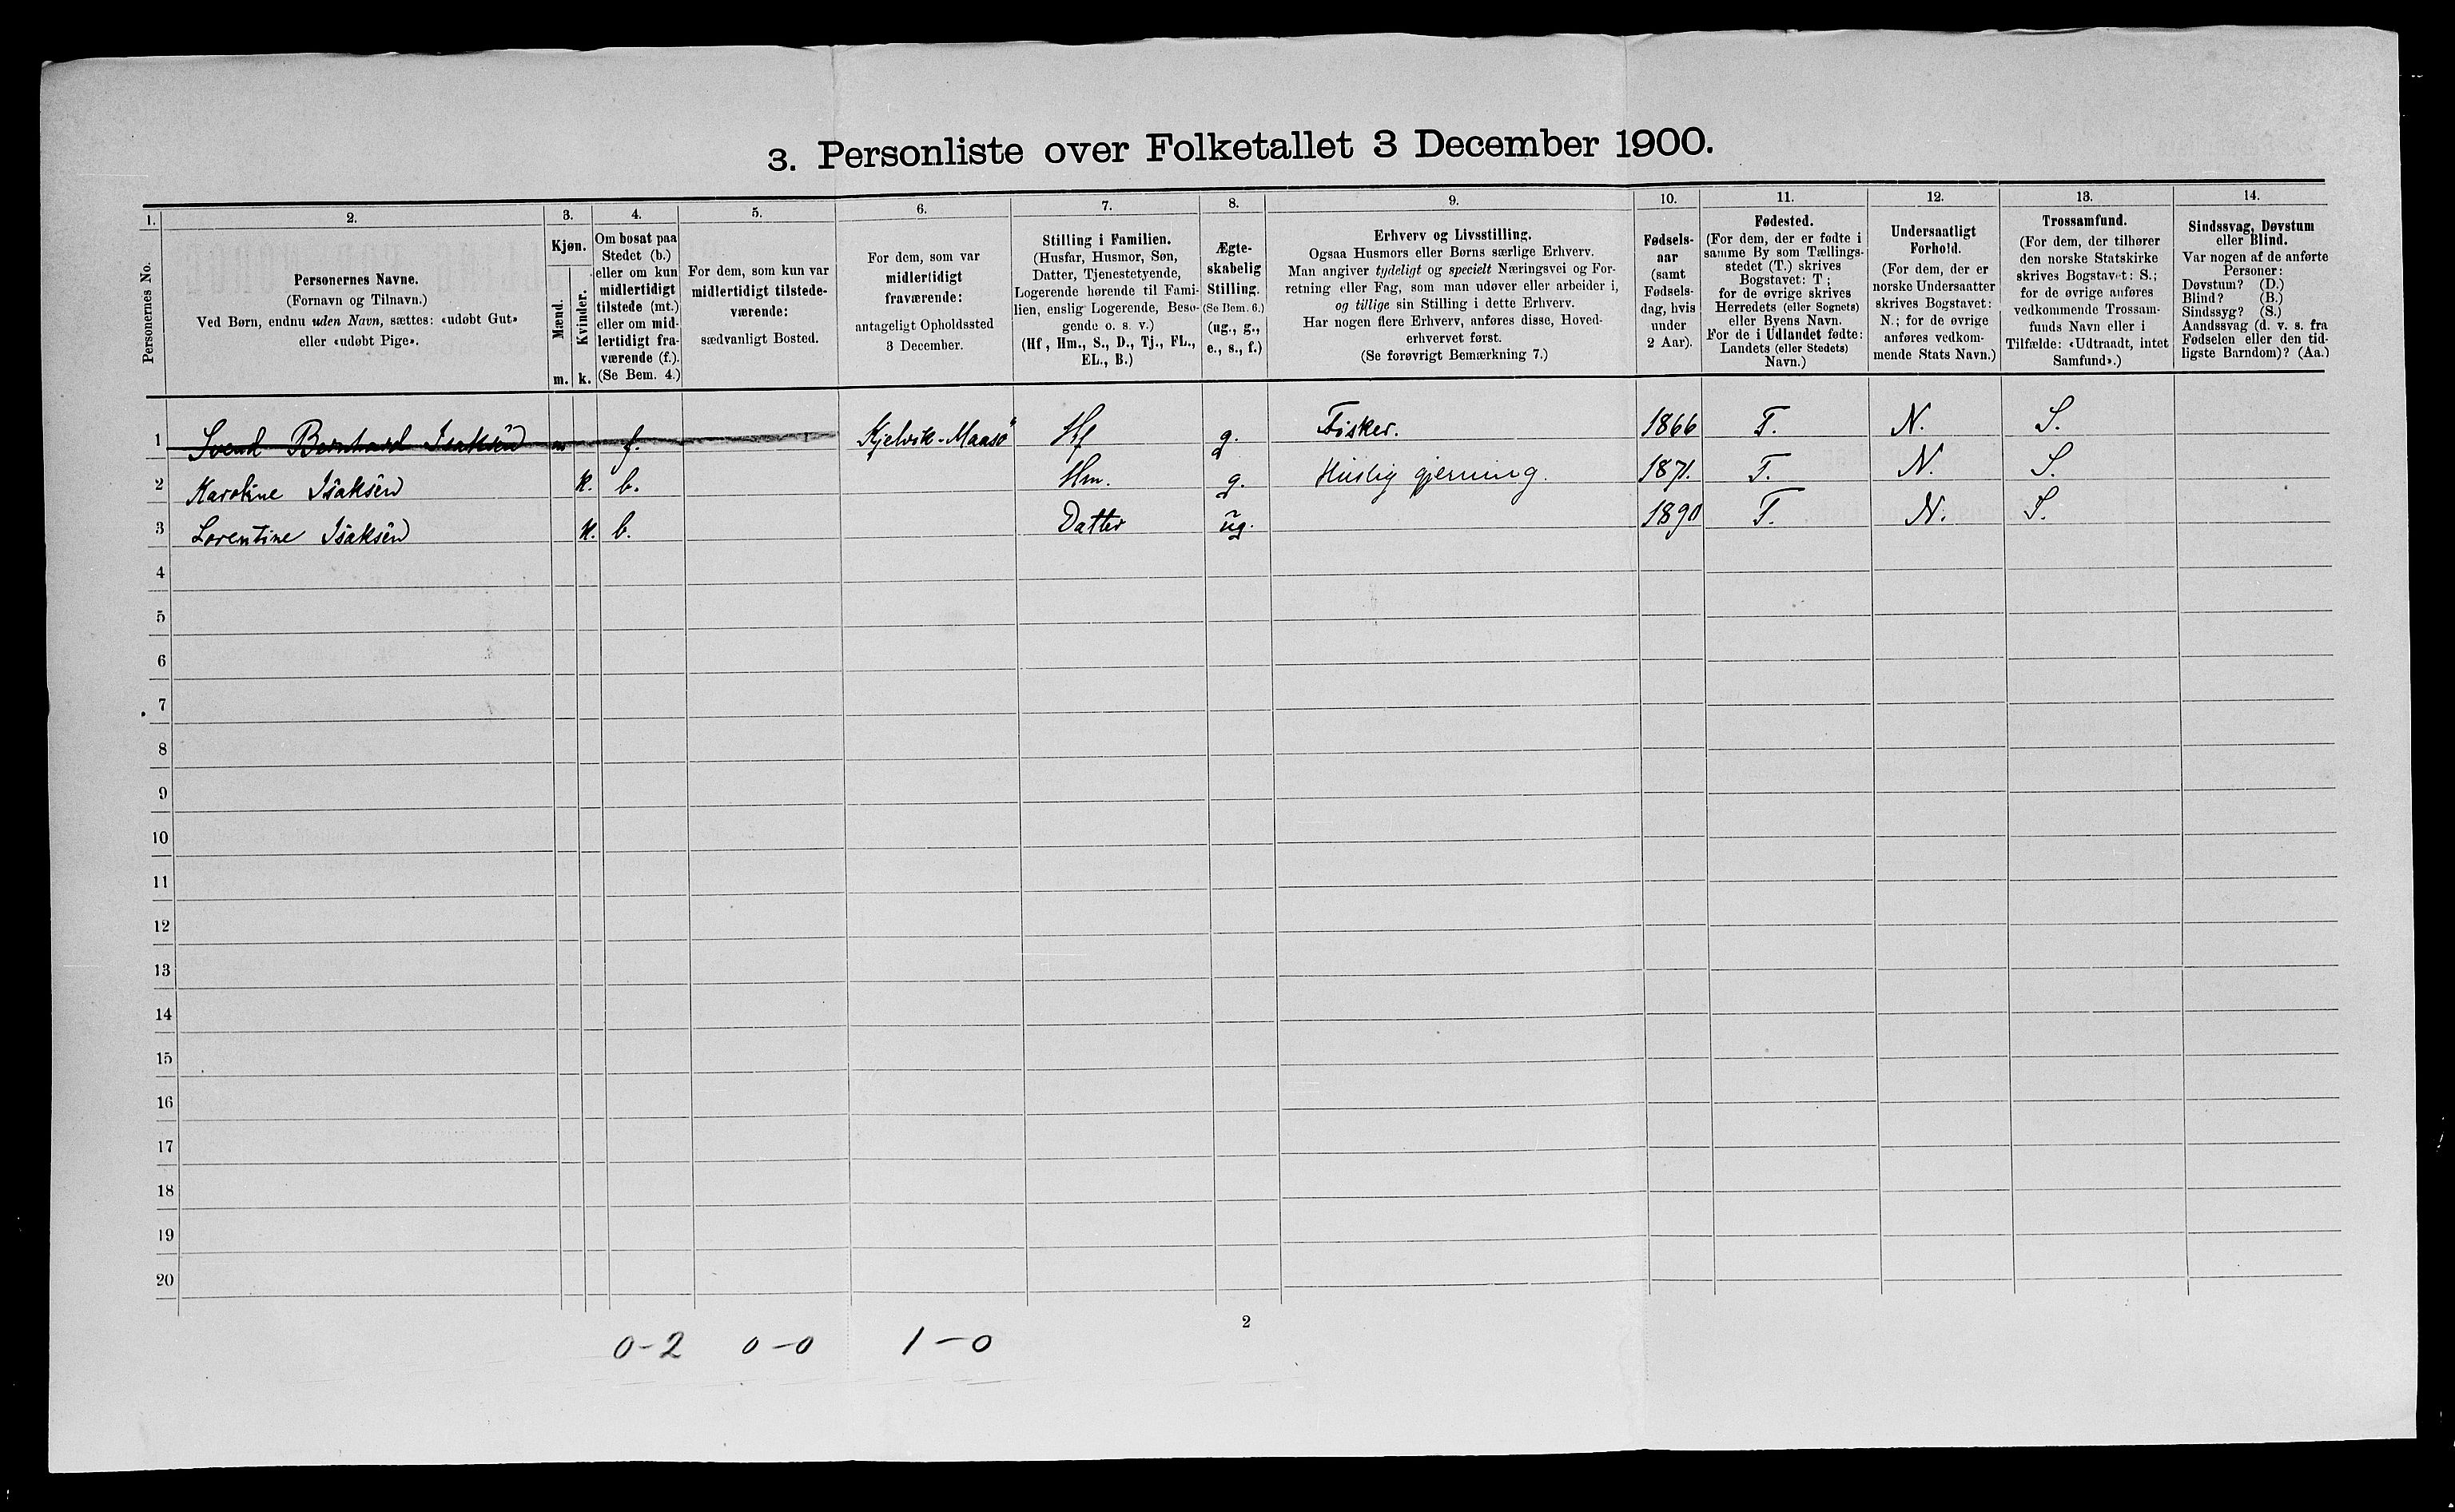 3. Personliste over Folketallet 3 December 1900.
1. 2. 3. 4. 5. 6. 7. 8. 9. 10. 11. 12. 13. 14.
Personernes No.
Personernes Navne.
(Fornavn og Tilnavn.)
Ved Børn, endnu uden Navn, sættes: «udøbt Gut»
eller «udøbt Pige».
Kjøn.
Mænd.
Kvinder.
m. k.
Om bosat paa
Stedet (b.)
eller om kun
midlertidigt
tilstede (mt.)
eller om mid-
lertidigt fra-
værende (f.).
(Se Bem. 4.)
For dem, som kun var
midlertidigt tilstede-
værende:
sædvanligt Bosted.
For dem, som var
midlertidigt
fraværende:
antageligt Opholdssted
3 December.
Stilling i Familien.
(Husfar, Husmor, Søn,
Datter, Tjenestetyende,
Logerende hørende til Fami-
lien, enslig Logerende, Besø-
gende o. s. v.)
(Hf, Hm., S., D., Tj., FL.,
EL., B.)
Ægte-
skabelig
Stilling.
(Se Bem. 6.)
(ug., g.,
e., s., f.)
Erhverv og Livsstilling.
Ogsaa Husmors eller Børns særlige Erhverv.
Man angiver tydeligt og specielt Næringsvei og For-
retning eller Fag, som man udøver eller arbeider i,
og tillige sin Stilling i dette Erhverv.
Har nogen flere Erhverv, anføres disse, Hoved-
erhvervet først.
(Se forøvrigt Bemærkning 7.)
Fødsels-
aar
(samt
Fødsels-
dag, hvis
under
2 Aar).
Fødested.
(For dem, der er fødte i
samme By som Tællings-
stedet (T.) skrives
Bogstavet: T;
for de øvrige skrives
Herredets (eller Sognets)
eller Byens Navn.
For de i Udlandet fødte:
Landets (eller Stedets)
Navn.)
Undersaatligt
Forhold.
(For dem, der er
norske Undersaatter
skrives Bogstavet:
N.; for de øvrige
anføres vedkom-
mende Stats Navn.)
Trossamfund.
(For dem, der tilhører
den norske Statskirke
skrives Bogstavet: S.;
for de øvrige anføres
vedkommende Trossam-
funds Navn eller i
Tilfælde: «Udtraadt, intet
Samfund».)
Sindssvag, Døvstum
eller Blind.
Var nogen af de anførte
Personer:
Døvstum? (D.)
Blind? (B.)
Sindssyg? (S.)
Aandssvag (d. v. s. fra
Fødselen eller den tid-
ligste Barndom)? (Aa.)
1 Svend Bernhard Isaksen m f. Kjelvik-Maasø Hf g. Fisker. 1866 T. N. S.
2 Karoline Isaksen k. b. Hm. g. Huslig gjerning. 1871. T. N. S.
3 Lorentine Isaksen k. b. Datter ug. 1890 T. N. S.
4
5
6
7
8
9
10
11
12
13
14
15
16
17
18
19
20
2
0-2 0-0 1-0